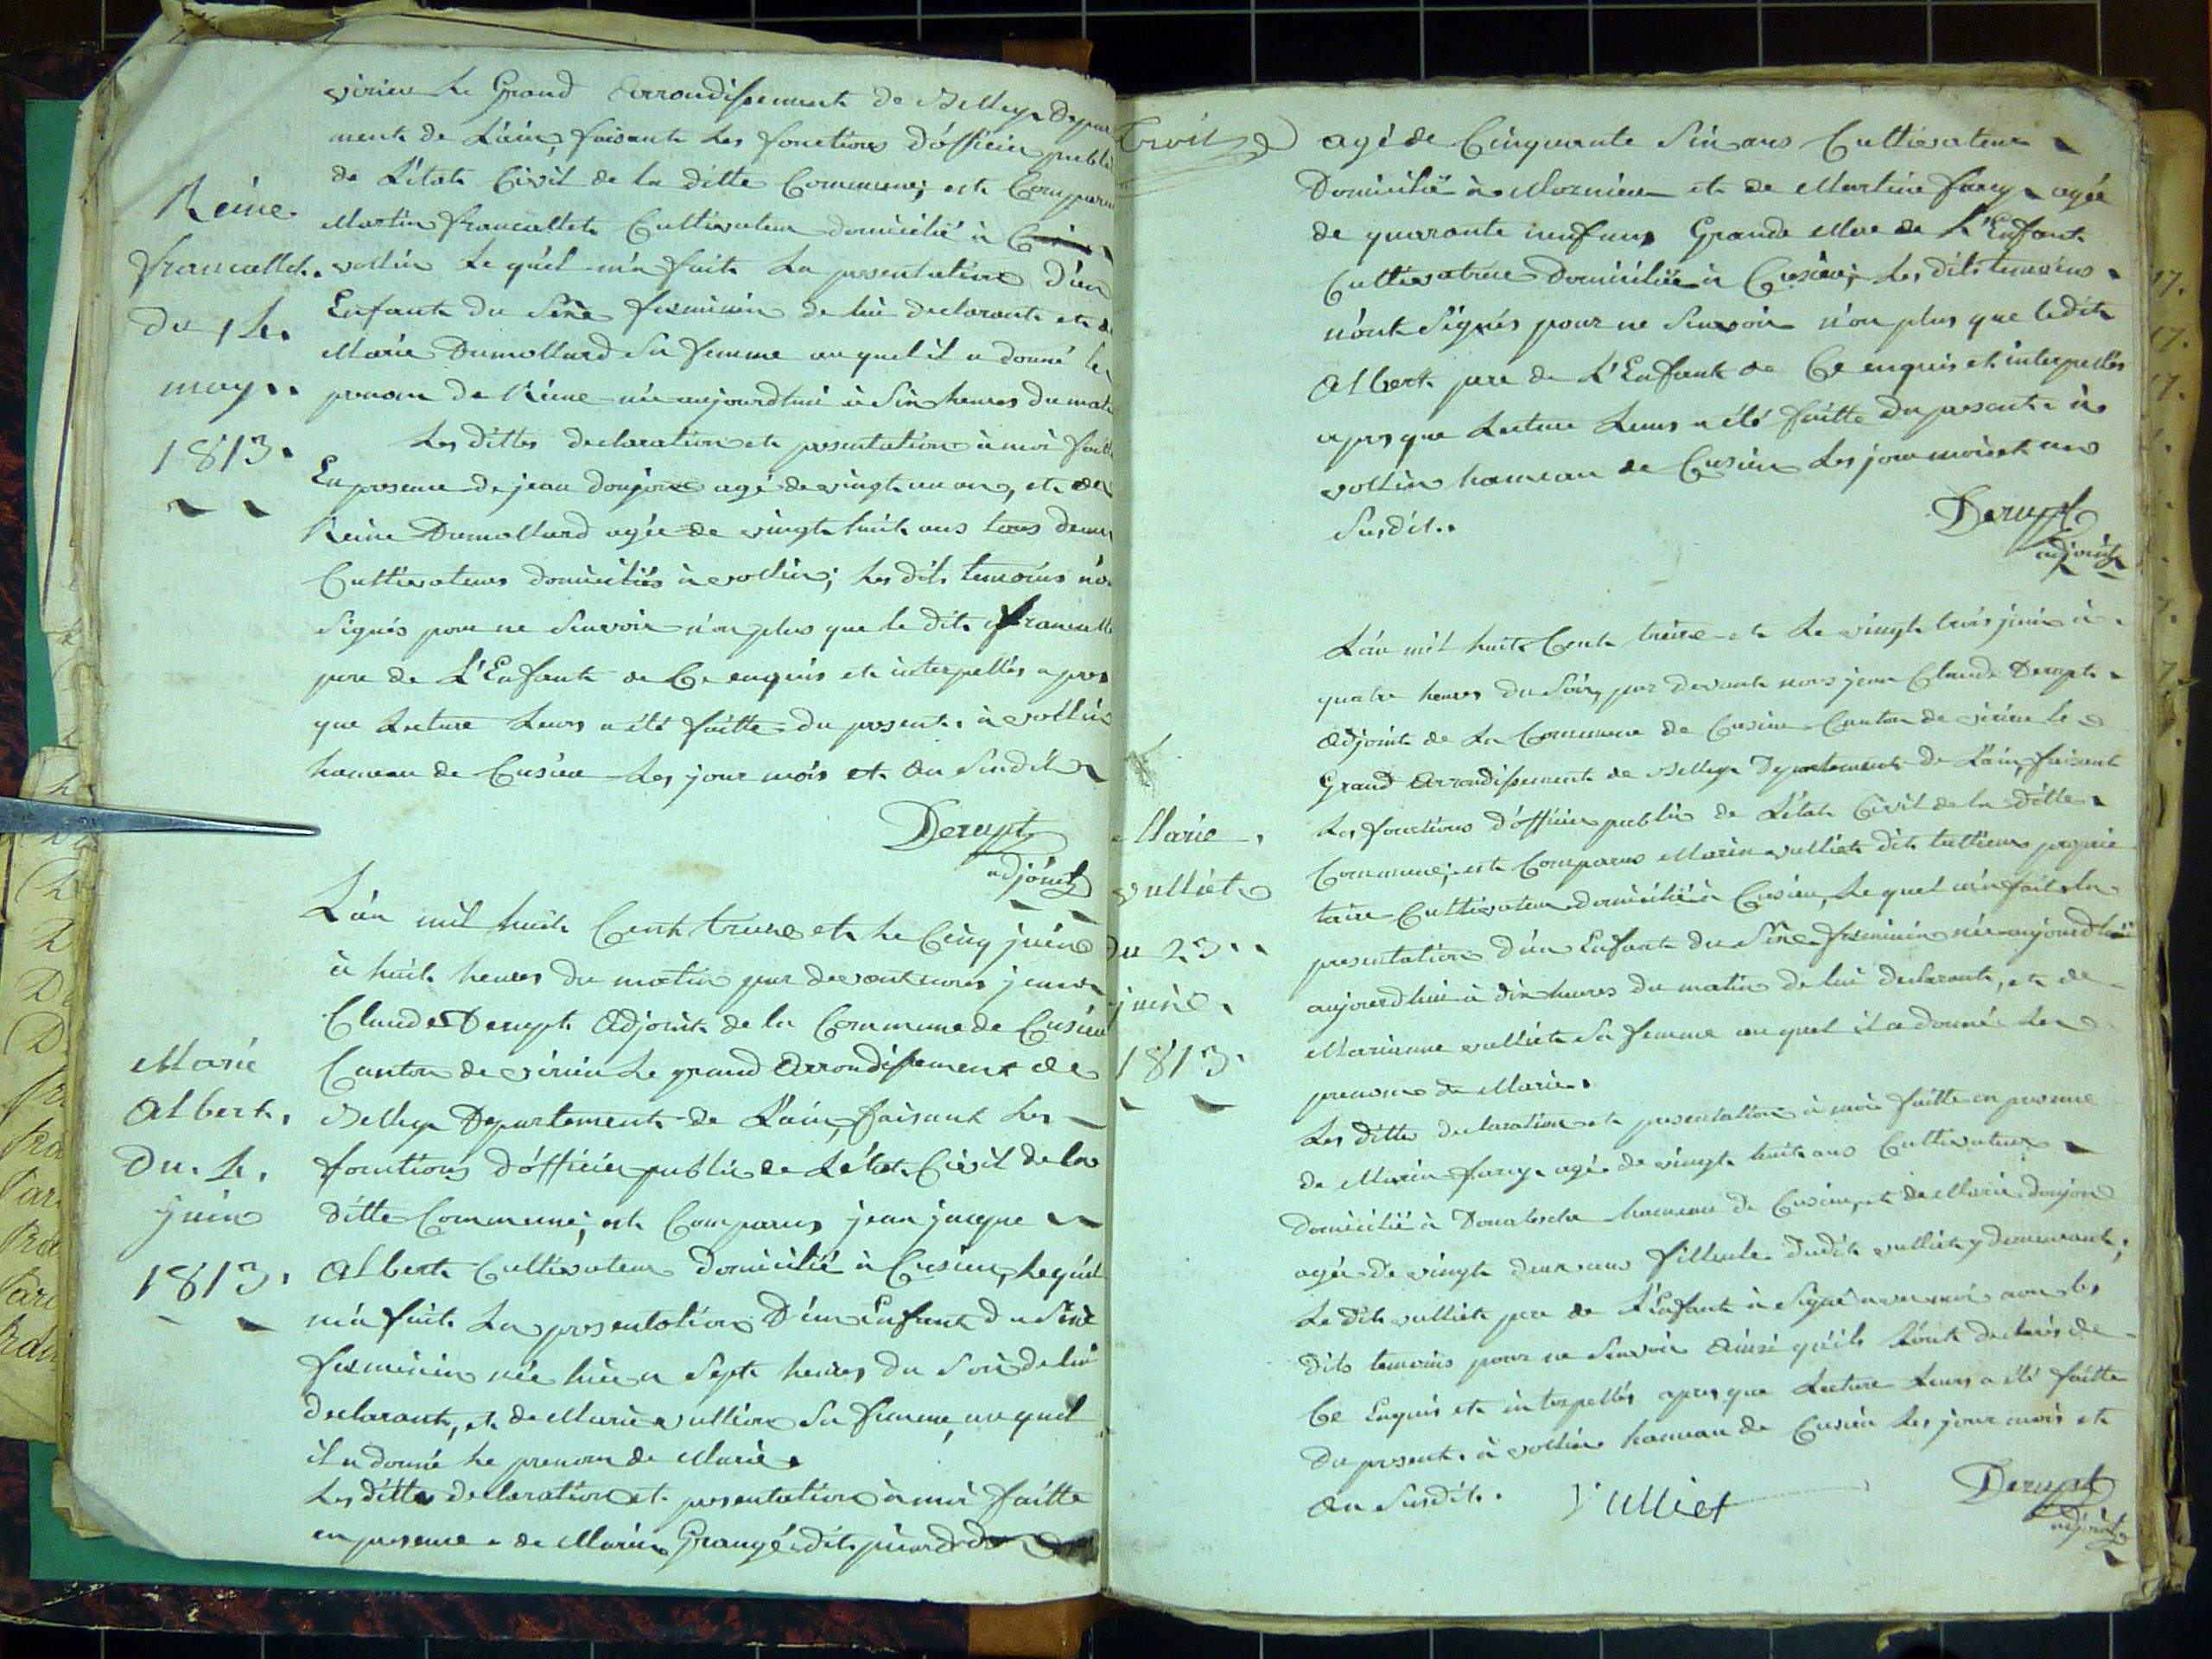 virieu le Grand arrondissement de Belley Depar
ment de L'ain, faisant les fonctions d'officier publi
de L'état Civil de la ditte Commune; est Comparu
Martin francallet Cultivateur domicilié à
vollin le quel m'a fait La presentation d'un
Enfant du Sexe feminin de lui declarant et d
Marie Dumollard Sa femme au quel il a donné le
prenom de Reine née aujourdhui à Six heures du mati
Les dittes declaration et presentation à moi faitt
En presence de jean Donjon agé de vingt un ans, et de
Reine Dumollard agée de vingt huit ans tous deux
Cultivateurs domiciliés à vollin; les dits temoins n'o
Signés pour ne Scavoir n'on plus que le dit francalle
pere de L'Enfant de Ce enquis et interpellés apres
que Lecture Leurs a été faitte du present. à vollin
hameau de Cusieu Les jour mois et an Susdit
Derupt
adjoint
Reine
francallet.
du 14.
may.
1813.
L'an mil huit Cent treize et le Cinq juin
à huit heures du matin par devant nous jean
Claude Derupt Adjoint de la Commune de Cusieu
Canton de virieu le grand Arrondissement de
Belley Departement de L'ain, faisant les
fonctions d'officier public de L'état Civil de la
ditte Commune; est Comparus jean jacque
Albert Cultivateur domicilié à Cusieu, le quel
m'a fait La presentation D'un Enfant du Sexe
feminin née hier a Sept heures du Soir de lui
declarant, et de Marie vullion Sa femme, au quel
il a donné le prenom de Marie.
Les dittes declaration et presentation à moi faitte
en presence de Marin Grangé dit
Marie
Albert,
Du. 4.
juin
1813.
agé de Cinquante Six ans Cultivateur
Domicilié à et de Martine farcy agée
de quarante neuf ans Grande Mere de L'Enfant
Cultivatrice Domiciliée à Cusieu; Les dits temoins
n'ont Signés pour ne Scavoir n'on plus que le dit
Albert pere de L'Enfant de Ce enquis et interpellés
apres que Lecture Leurs a été faitte du present à
vollin hameau de Cusieu Les jour mois et an
Susdit.
Derupt
adjoint
L'an mil huit Cent treize et le vingt trois juin à
quatre heures du Soir, par devant nous jean Claude Derupt
Adjoint de La Commune de Cusieu Canton de virieu le
Grand Arrondissement de Belley Departement de L'ain, faisant
Les fonctions d'officier public de L'état Civil de la ditte
Commune; est Comparus Marin vulliet dit proprié
taire Cultivateur domicilié à Cusieu, Le quel m'a fait la
presentation d'un Enfant du Sexe feminin née aujourdhui
aujourdhui à dix heures du matin de lui declarant, et de
Marianne vulliet Sa femme au quel il a donné Le
prenom de Marie.
Les dittes declaration et presentation à moi faitte en presence
de Marin farcy agé de vingt huit ans Cultivateur
domicilié à hameau de Cusieu, et de Marie donjon
agée de vingt deux ans filleule dudit vulliet y demeurant;
Le dit vulliet pere de L'Enfant à Signé avec moi non les
dits temoins pour ne Scavoir Ainsi qu'ils L'ont declarés de
Ce Enquis et interpellés apres que Lecture Leurs a été faitte
du present à vollin hameau de Cusieu Les jour mois et
an Susdit.
Vulliet
Derupt
adjoint
Marie
vulliet
du 23.
juin.
1813.